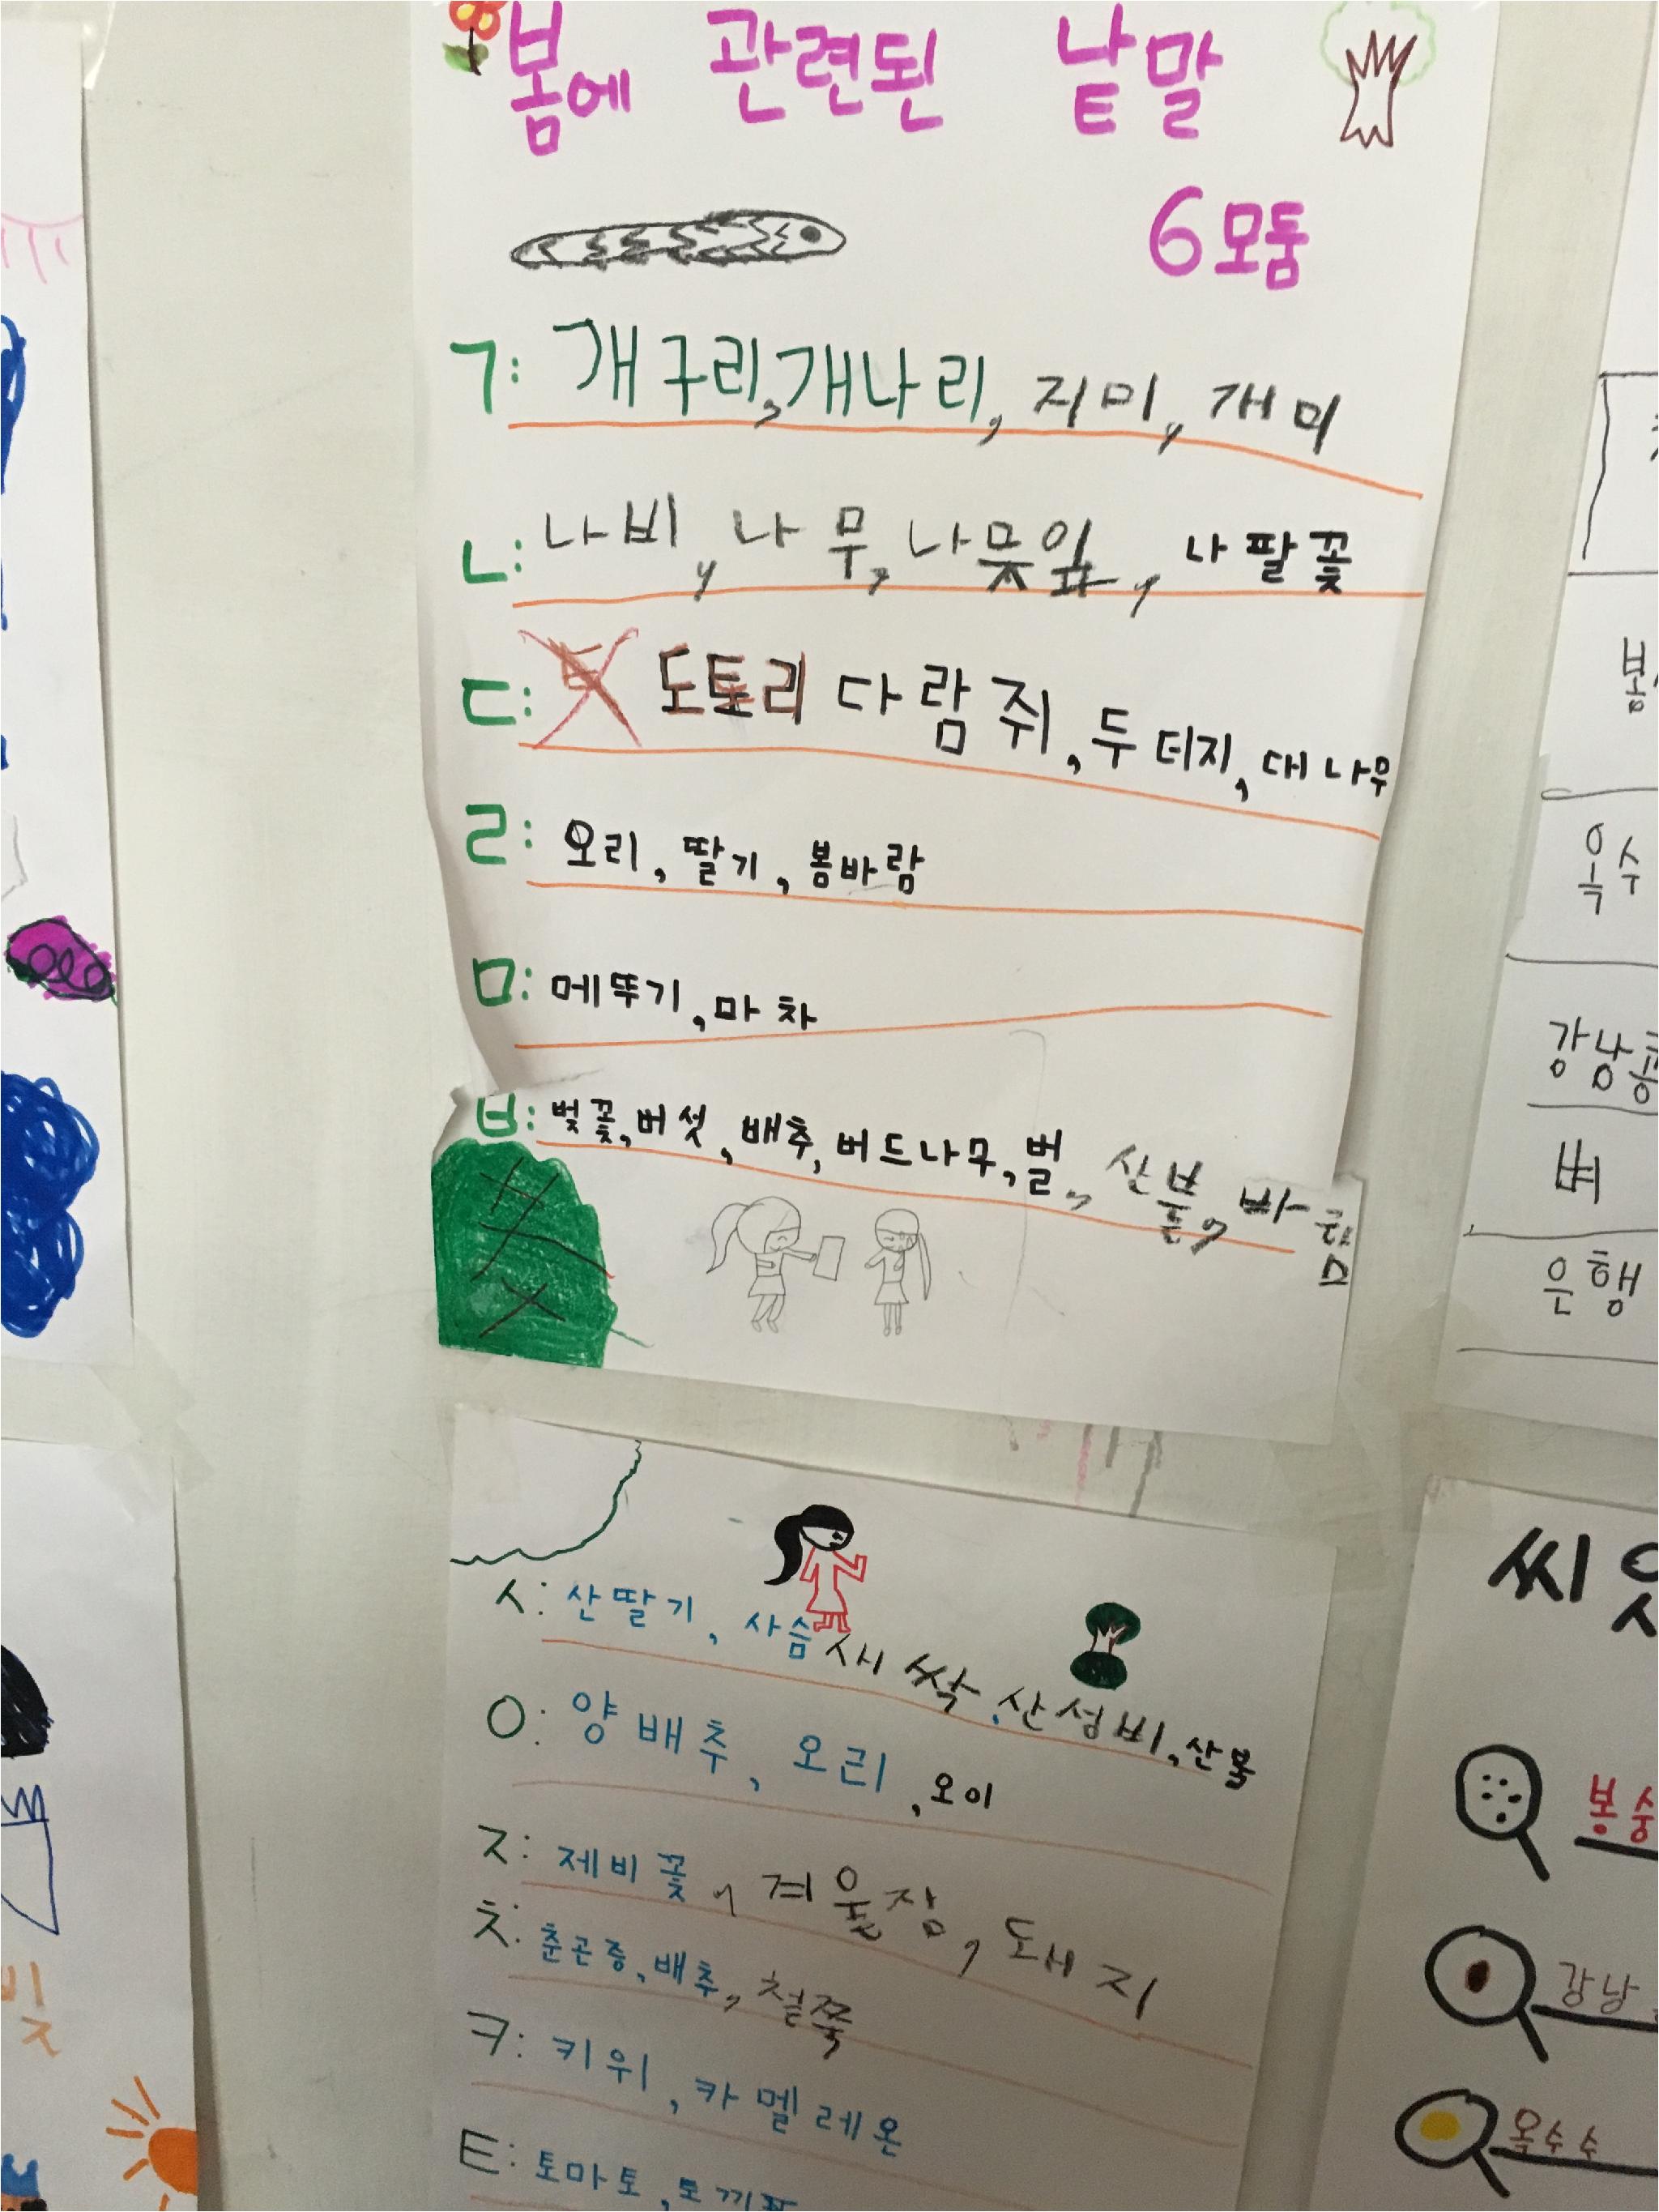 봄에 관련된 낱말
6모둠
ㄱ: 개구리, 개나리, 지미, 개미
ㄴ: 나비, 나무, 나뭇잎, 나팔꽃
ㄷ: 도토리 다람쥐, 두더지, 대나무
ㄹ: 오리, 딸기, 봄바람
ㅁ: 메뚜기, 마차
ㅂ: 벚꽃, 버섯, 배추, 버드나무, 벌, 산불, 바람
ㅅ: 산딸기, 사슴 새싹, 산성비, 산불
ㅇ: 양배추, 오리, 오이
ㅈ: 제비꽃, 겨울잠, 돼지
ㅊ: 춘곤증, 배추, 철쭉
ㅋ: 키위, 카멜레온
ㅌ: 토마토, 토끼풀
옥수
강낭콩
벼
은행
씨앗
봉숭
강낭
옥수수
빗